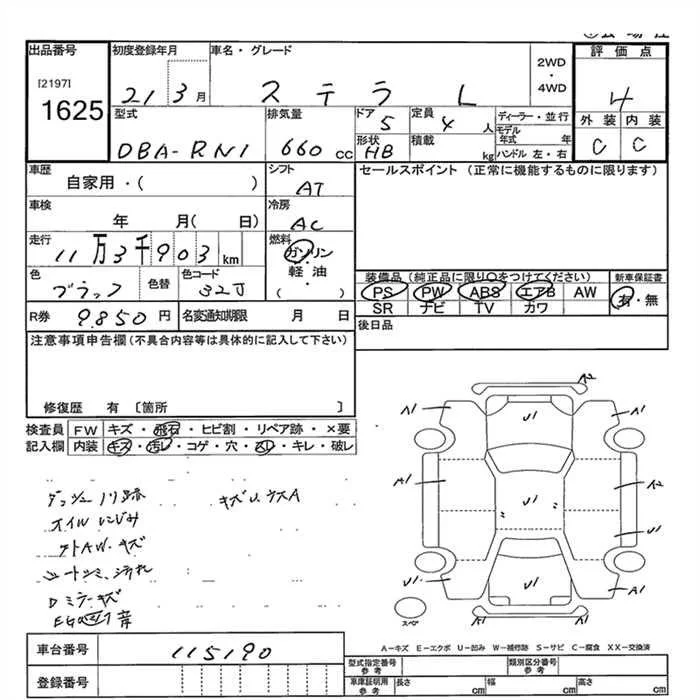 出品番号 初度登録年月 車名・グレード 2WD・4WD 評価点
[2197]
1625
21 3月 ステラ L 4
型式 排気量 ドア 定員 ディーラー・並行 外装 内装
DBA-RN1 660cc 5 4人 モデル年式 年 C C
形状 積載 kg ハンドル 左・右
HB
車歴 シフト セールスポイント (正常に機能するものに限ります)
自家用・( ) AT
車検 冷房
年 月( 日) AC
走行 燃料
11万3千903km ガソリン・軽油・( )
色 色替 色コード
ブラック 32J
装備品(純正品に限り○をつけてください) 新車保証書
PS PW ABS エアB AW 有・無
SR ナビ TV カワ
R券 9.850円 名変通知期限 月 日
後日品
注意事項申告欄(不具合内容等は具体的に記入して下さい)
修復歴 有 〔箇所 〕
検査員記入欄
FW キズ・飛石・ヒビ割・リペア跡・×要
内装 キズ・汚レ・コゲ・穴・スレ・キレ・破レ
ダッシュノリ跡 キズUウスA
オイルにじみ
シートシミ、汚れ
Dミラーキズ
A2
A1 U1 A1
A1 U1 A2
U1
U1 U1 A1
A1 A1
スペア
A-キズ E-エクボ U-凹み W-補修跡 S-サビ C-腐食 XX-交換済
車台番号 115190
登録番号
型式指定番号 参考 類別区分番号 参考
車庫証明用 参考 長さ cm 幅 cm 高さ cm